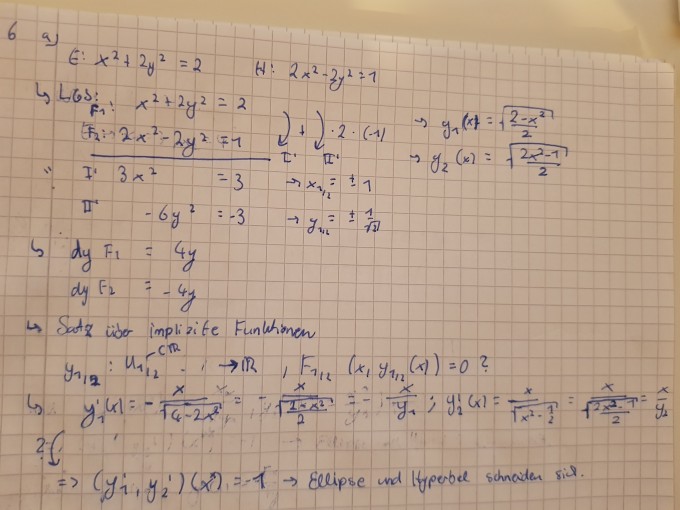 6 a)
E: x² + 2y² = 2    H: 2x² - 2y² = 1
↳ LGS:
F₁: x² + 2y² = 2    → y₁(x) = √((2-x²)/2)
F₂: 2x² - 2y² = 1    + · 2 · (-1)    → y₂(x) = √((2x²-1)/2)
I' II'
I' 3x² = 3 → x₁/₂ = ± 1
II' -6y² = -3 → y₁/₂ = ± 1/√2
↳ dy F₁ = 4y
dy F₂ = -4y
↳ Satz über implizite Funktionen
y₁/₂ : U₁/₂ ⊂ℝ → ℝ , F₁/₂ (x, y₁/₂(x)) = 0 ?
↳ y₁'(x) = - x/√(4-2x²) = - x/√((2-x²)/2) = - x/y₁ ; y₂'(x) = x/√(x²-1/2) = x/√((2x²-1)/2) = x/y₂
?
=> (y₁', y₂')(x) = -1 → Ellipse und Hyperbel schneiden sich.